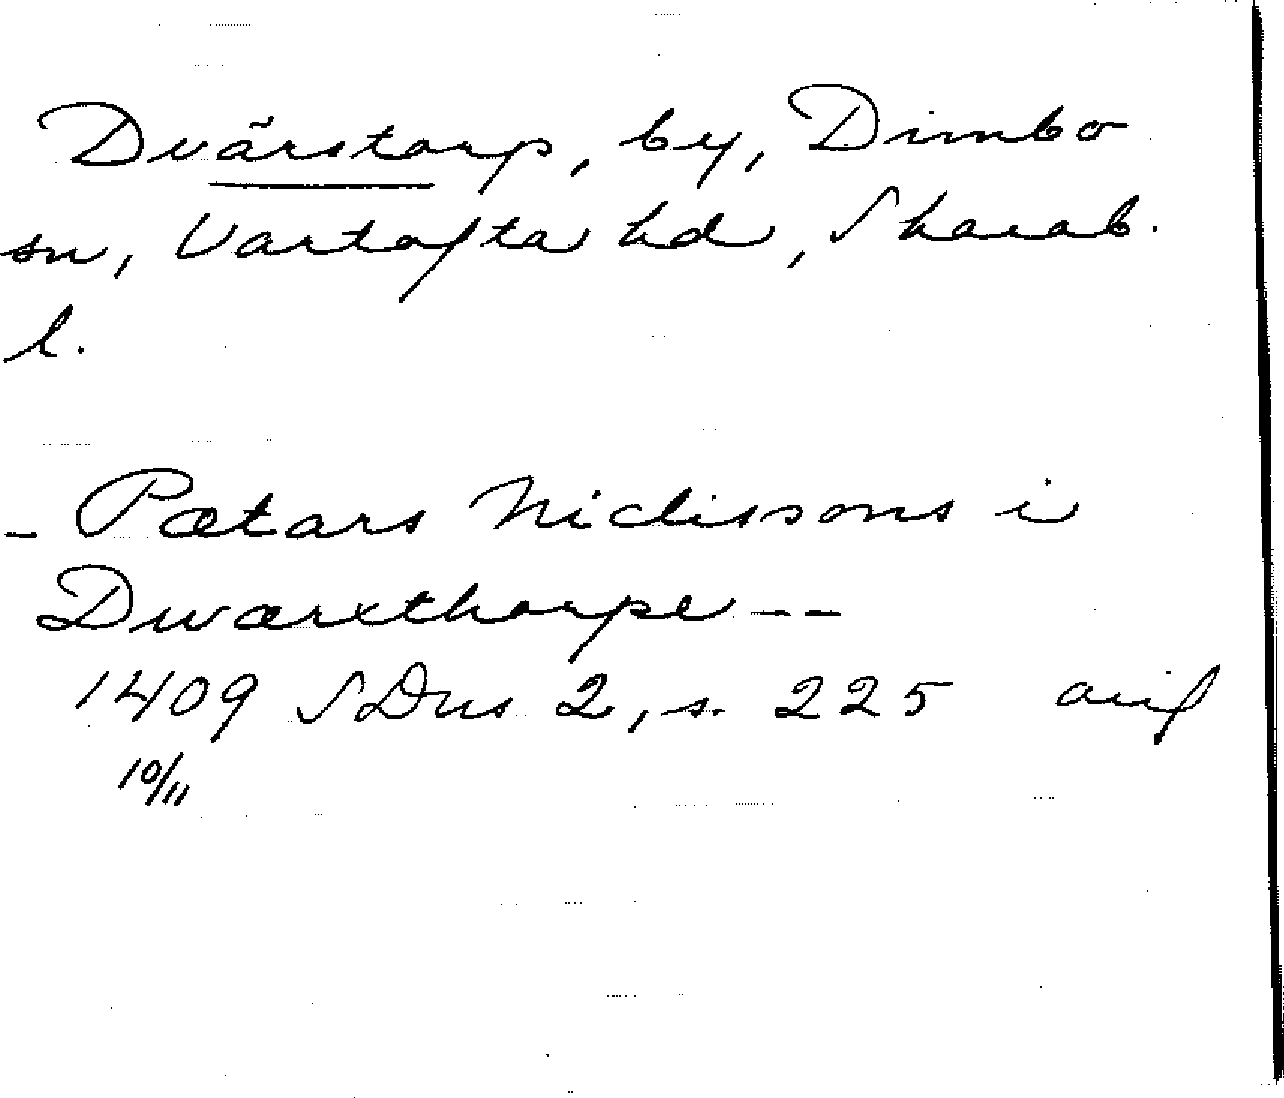 Dvärstorp, by, Dimbo
sn, Vartofta hd, Skarab.
l.
- Pætars Niclissons i
Dwærxthorpe --
1409 SDns 2, s. 225 avsk
10/11